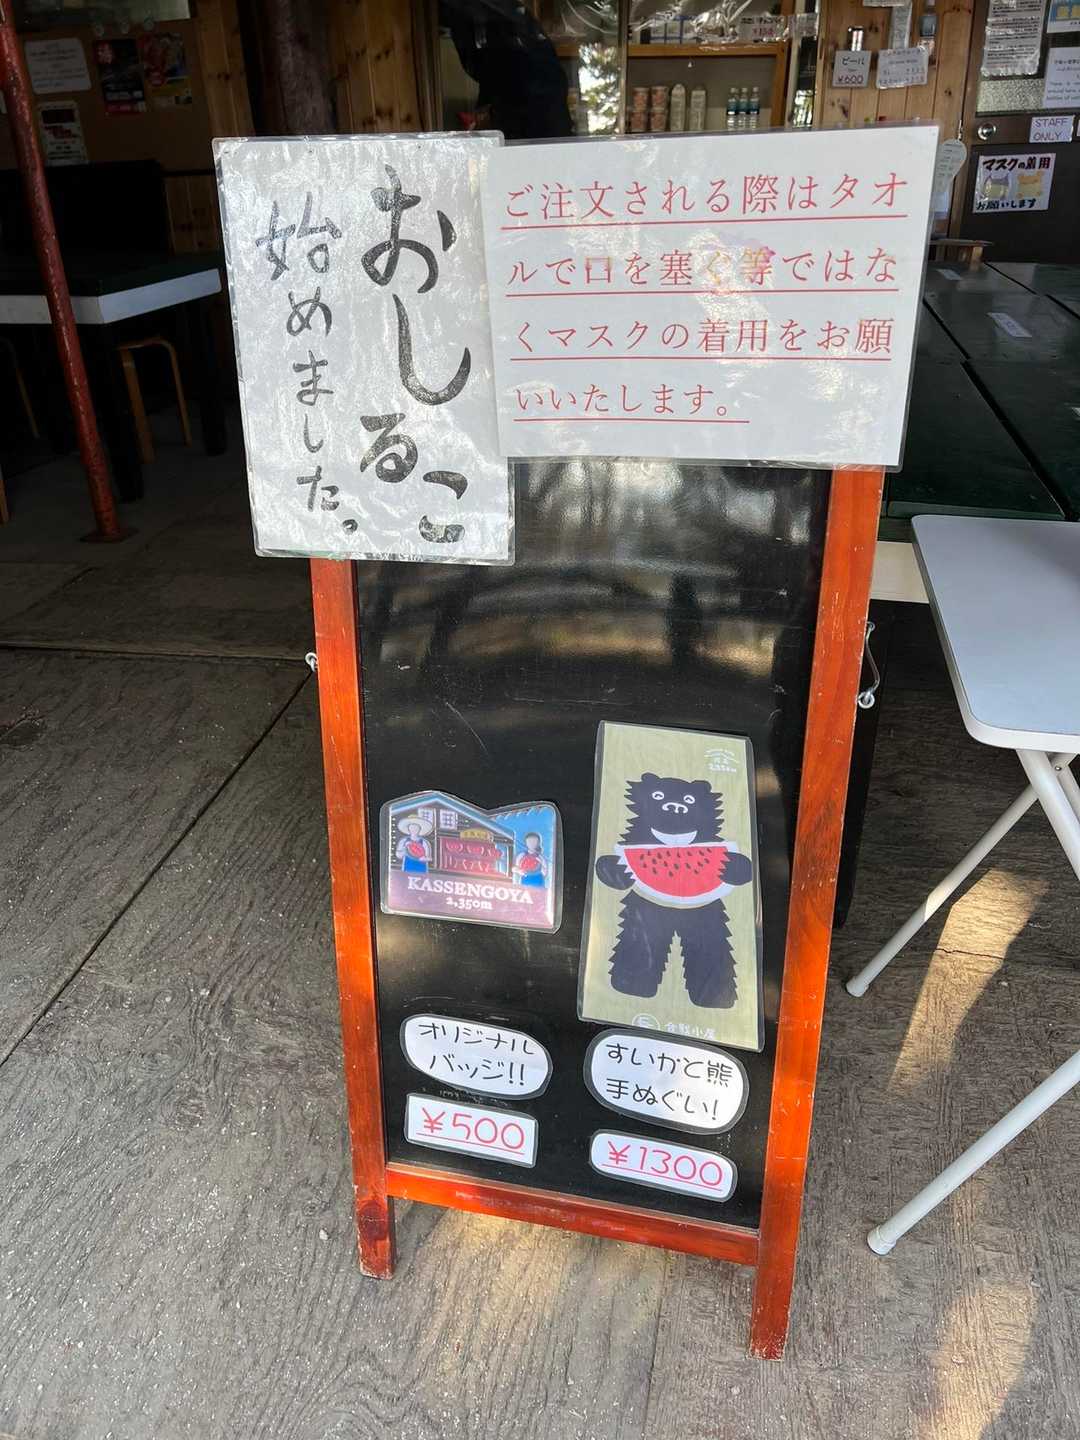 おしるこ
始めました。
ご注文される際はタオ
ルで口を塞ぐ等ではな
くマスクの着用をお願
いいたします。
ビール
¥600
STAFF
ONLY
マスクの着用
お願いします
KASSENGOYA
2,350m
合戦小屋
オリジナル
バッジ!!
¥500
すいかと熊
手ぬぐい!
¥1300